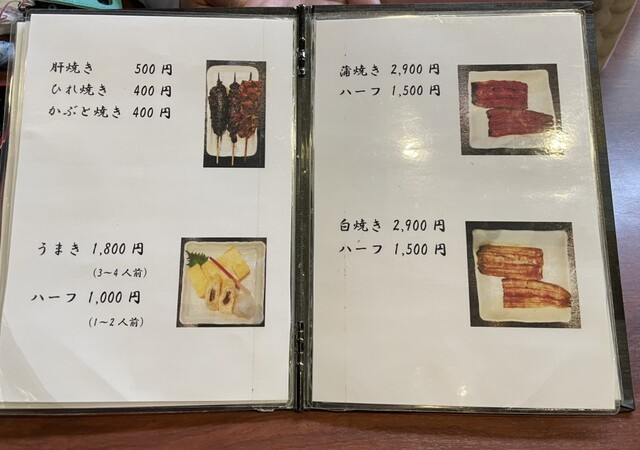 肝焼き 500円
ひれ焼き 400円
かぶと焼き 400円
うまき 1,800円
(3～4人前)
ハーフ 1,000円
(1～2人前)
蒲焼き 2,900円
ハーフ 1,500円
白焼き 2,900円
ハーフ 1,500円